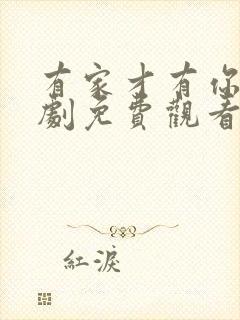 有家才有你
劇免費觀看
紅淚